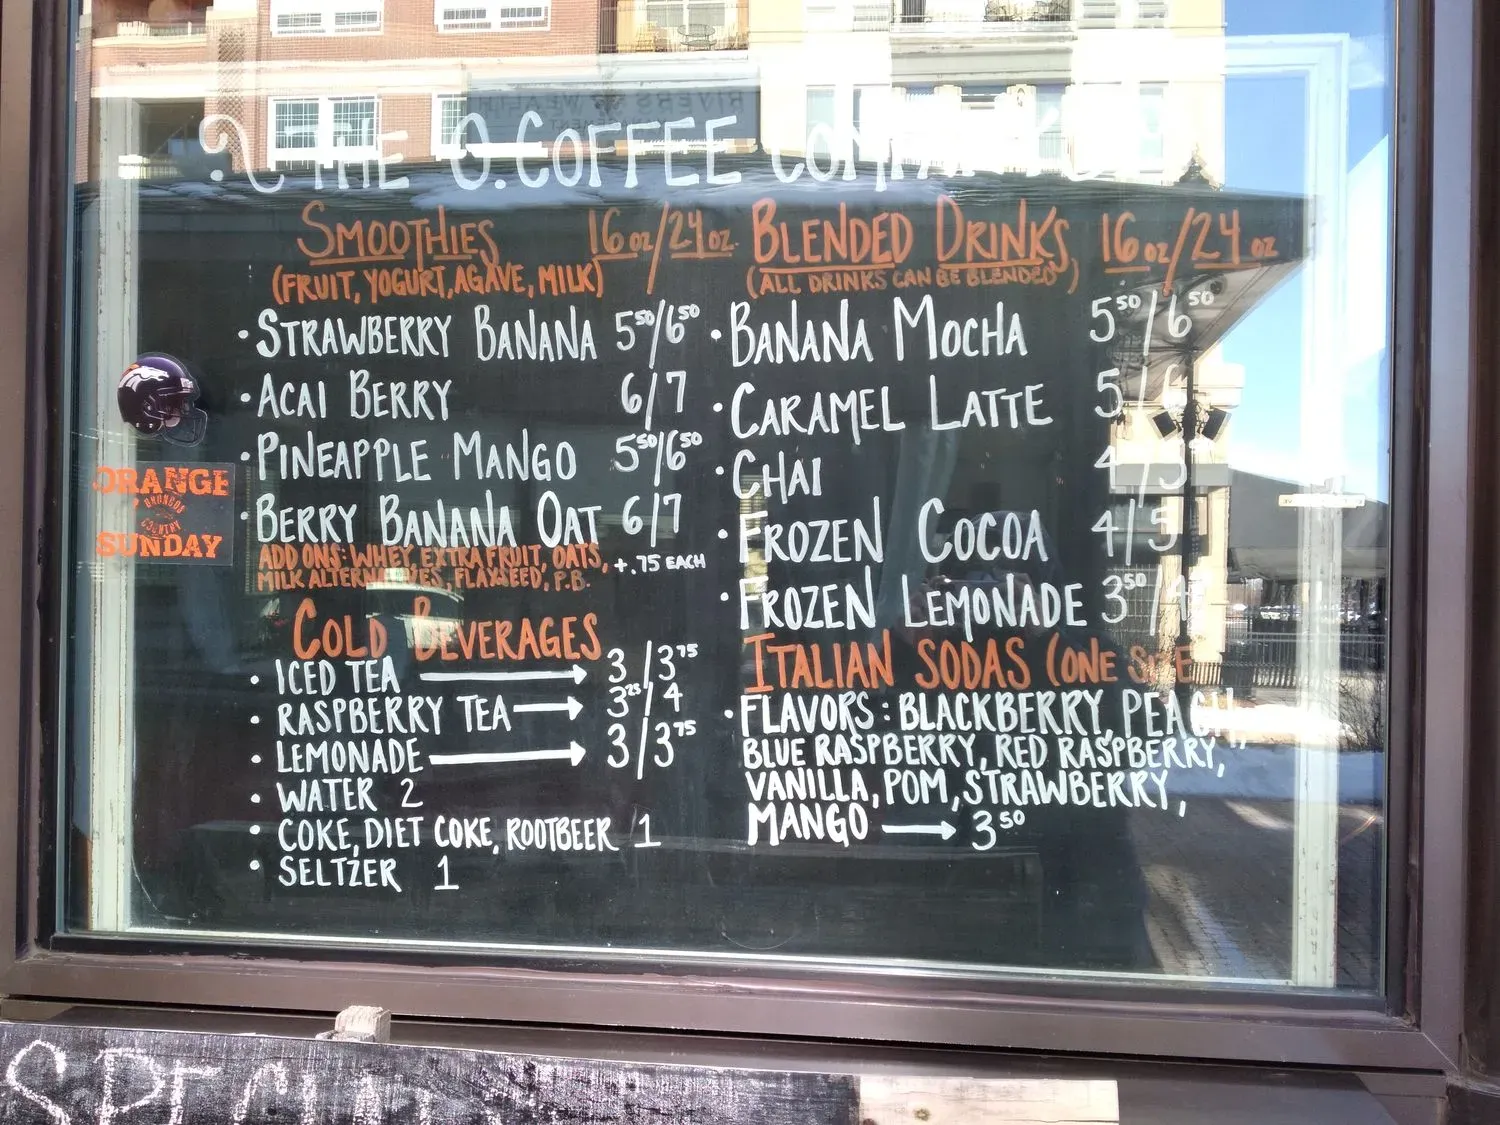 THE O.COFFEE COMPANY
SMOOTHIES 16oz/24oz.
(FRUIT, YOGURT, AGAVE, MILK)
• STRAWBERRY BANANA 5⁵⁰/6⁵⁰
• ACAI BERRY 6/7
• PINEAPPLE MANGO 5⁵⁰/6⁵⁰
• BERRY BANANA OAT 6/7
ADD ONS: WHEY, EXTRA FRUIT, OATS, +.75 EACH
MILK ALTERNATIVES, FLAXSEED, P.B.
COLD BEVERAGES
• ICED TEA → 3/3⁷⁵
• RASPBERRY TEA → 3²⁵/4
• LEMONADE → 3/3⁷⁵
• WATER 2
• COKE, DIET COKE, ROOTBEER 1
• SELTZER 1
BLENDED DRINKS 16oz/24oz
(ALL DRINKS CAN BE BLENDED)
• BANANA MOCHA 5⁵⁰/6⁵⁰
• CARAMEL LATTE 5/6
• CHAI 4/5
• FROZEN COCOA 4/5
• FROZEN LEMONADE 3⁵⁰/4
ITALIAN SODAS (ONE SIZE
• FLAVORS: BLACKBERRY, PEACH,
BLUE RASPBERRY, RED RASPBERRY,
VANILLA, POM, STRAWBERRY,
MANGO → 3⁵⁰
ORANGE
BRONCOS
COUNTRY
SUNDAY
RIVERS WEALTH
MANAGEMENT